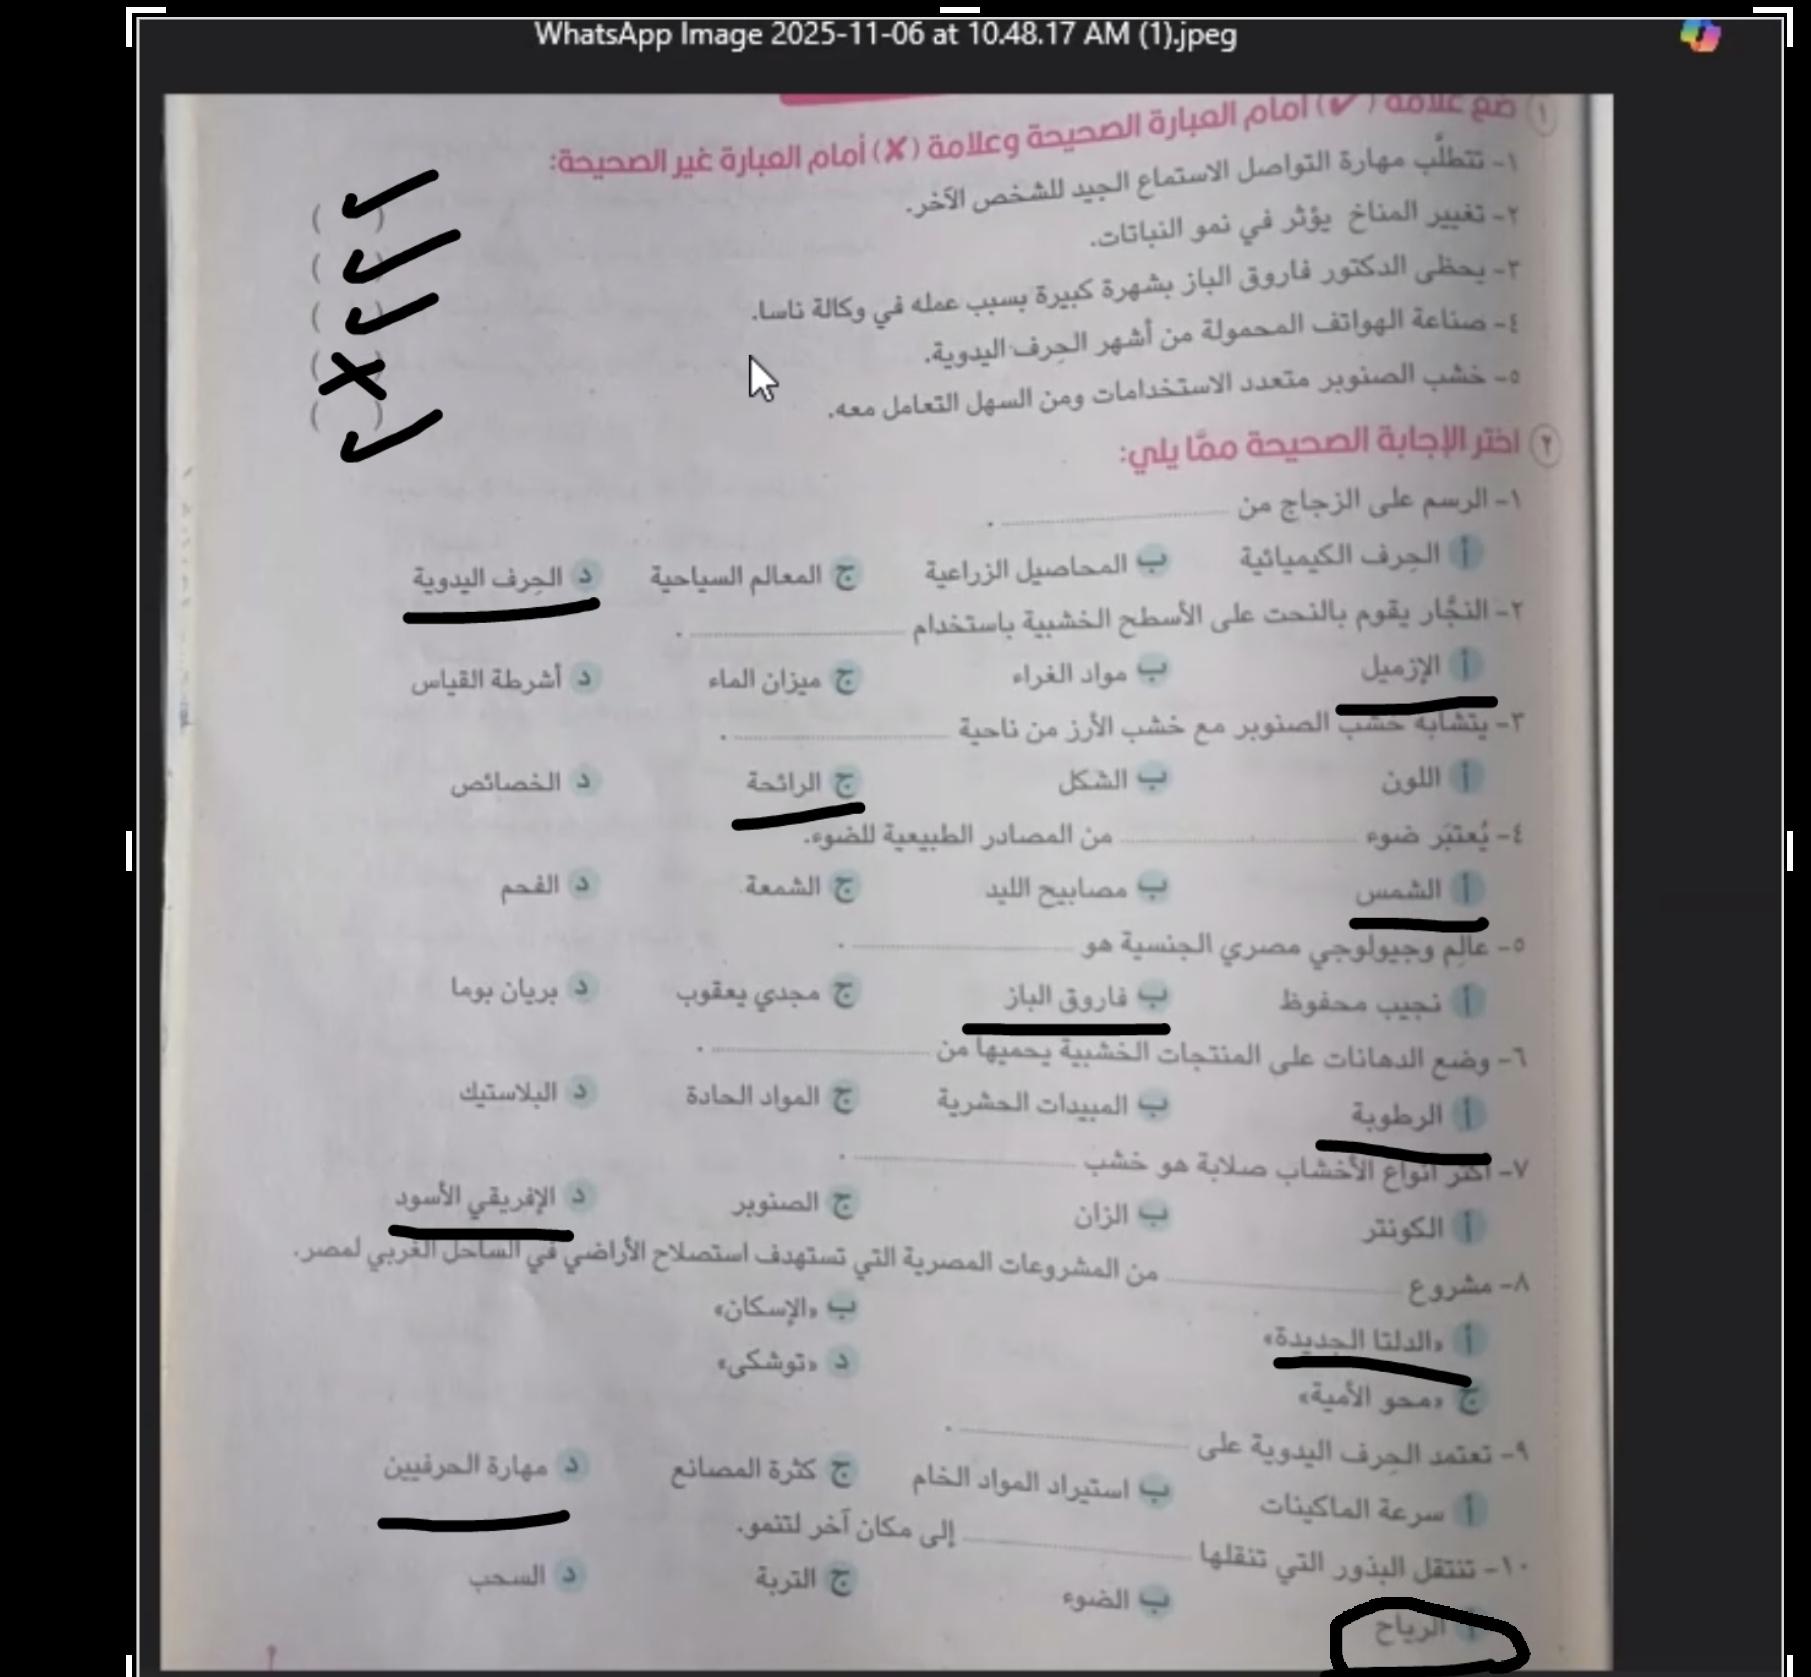 WhatsApp Image 2025-11-06 at 10.48.17 AM (1).jpeg
١ ضع علامة (✓) أمام العبارة الصحيحة وعلامة (✗) أمام العبارة غير الصحيحة:
١- تتطلَّب مهارة التواصل الاستماع الجيد للشخص الآخر. ( )
٢- تغيير المناخ يؤثر في نمو النباتات. ( )
٣- يحظى الدكتور فاروق الباز بشهرة كبيرة بسبب عمله في وكالة ناسا. ( )
٤- صناعة الهواتف المحمولة من أشهر الحِرف اليدوية. ( )
٥- خشب الصنوبر متعدد الاستخدامات ومن السهل التعامل معه. ( )
٢ اختر الإجابة الصحيحة ممَّا يلي:
١- الرسم على الزجاج من .................... .
أ الحِرف الكيميائية ب المحاصيل الزراعية ج المعالم السياحية د الحِرف اليدوية
٢- النجَّار يقوم بالنحت على الأسطح الخشبية باستخدام .................... .
أ الإزميل ب مواد الغراء ج ميزان الماء د أشرطة القياس
٣- يتشابه خشب الصنوبر مع خشب الأرز من ناحية .................... .
أ اللون ب الشكل ج الرائحة د الخصائص
٤- يُعتبَر ضوء .................... من المصادر الطبيعية للضوء.
أ الشمس ب مصابيح الليد ج الشمعة د الفحم
٥- عالِم وجيولوجي مصري الجنسية هو .................... .
أ نجيب محفوظ ب فاروق الباز ج مجدي يعقوب د بريان بوما
٦- وضع الدهانات على المنتجات الخشبية يحميها من .................... .
أ الرطوبة ب المبيدات الحشرية ج المواد الحادة د البلاستيك
٧- أكثر أنواع الأخشاب صلابة هو خشب .................... .
أ الكونتر ب الزان ج الصنوبر د الإفريقي الأسود
٨- مشروع .................... من المشروعات المصرية التي تستهدف استصلاح الأراضي في الساحل الغربي لمصر.
أ «الدلتا الجديدة» ب «الإسكان»
ج «محو الأمية» د «توشكى»
٩- تعتمد الحِرف اليدوية على .................... .
أ سرعة الماكينات ب استيراد المواد الخام ج كثرة المصانع د مهارة الحرفيين
١٠- تنتقل البذور التي تنقلها .................... إلى مكان آخر لتنمو.
أ الرياح ب الضوء ج التربة د السحب